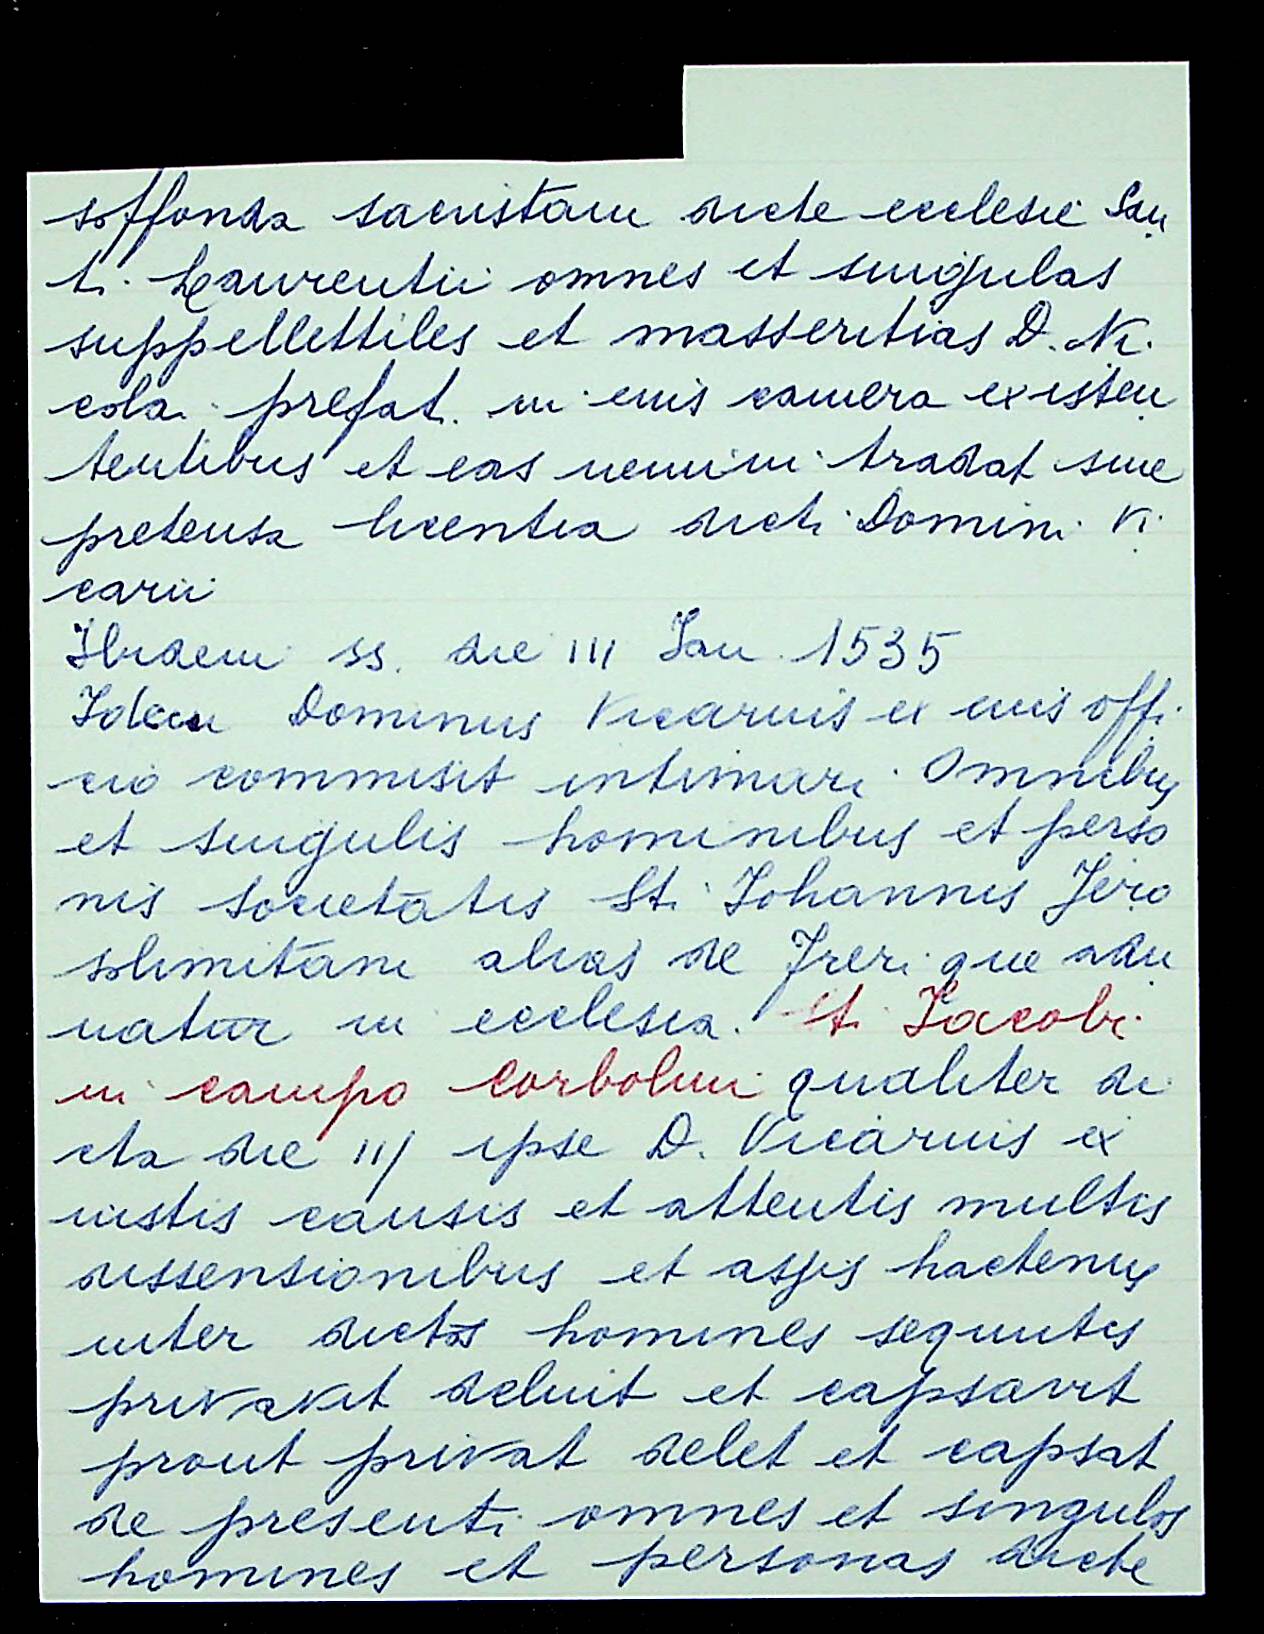 soffonda sacristam dicte ecclesie San
ti Laurentii omnes et singulas
suppellettiles et masseritias D. Ni
cola prefat. in eius camera existen
tentibus et eas nemini tradat sine
pretensa licentia dicti Domini Vi
carii
Ibidem ss. die III Jan. 1535
Idem Dominus Vicarius ex eius offi
cio commisit intimari Omnibus
et singulis hominibus et perso
nis societatis Sti Johannis Jero
solimitani alias de Jreri que adu
natur in ecclesia St. Jacobi
in campo Corbolini qualiter di
cta die III ipse D. Vicarius ex
iustis causis et attentis multis
dissensionibus et assis hactenus
inter dictos homines sequutis
privavit deluit et capsavit
prout privat delet et capsat
de presenti omnes et singulos
homines et personas dicte